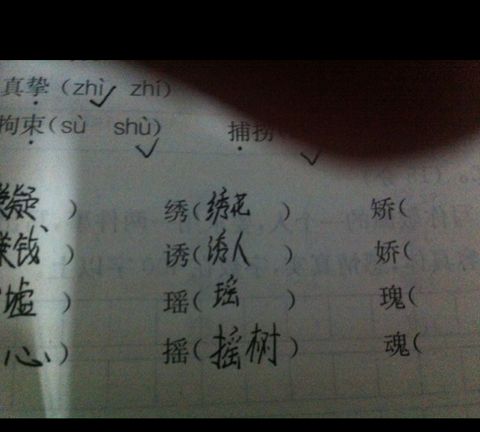 真挚(zhì zhí)
拘束(sù shù) 捕拐
疑) 绣(绣花) 矫(
钱) 诱(诱人) 娇(
墟) 瑶(瑶) 瑰(
心) 摇(摇树) 魂(